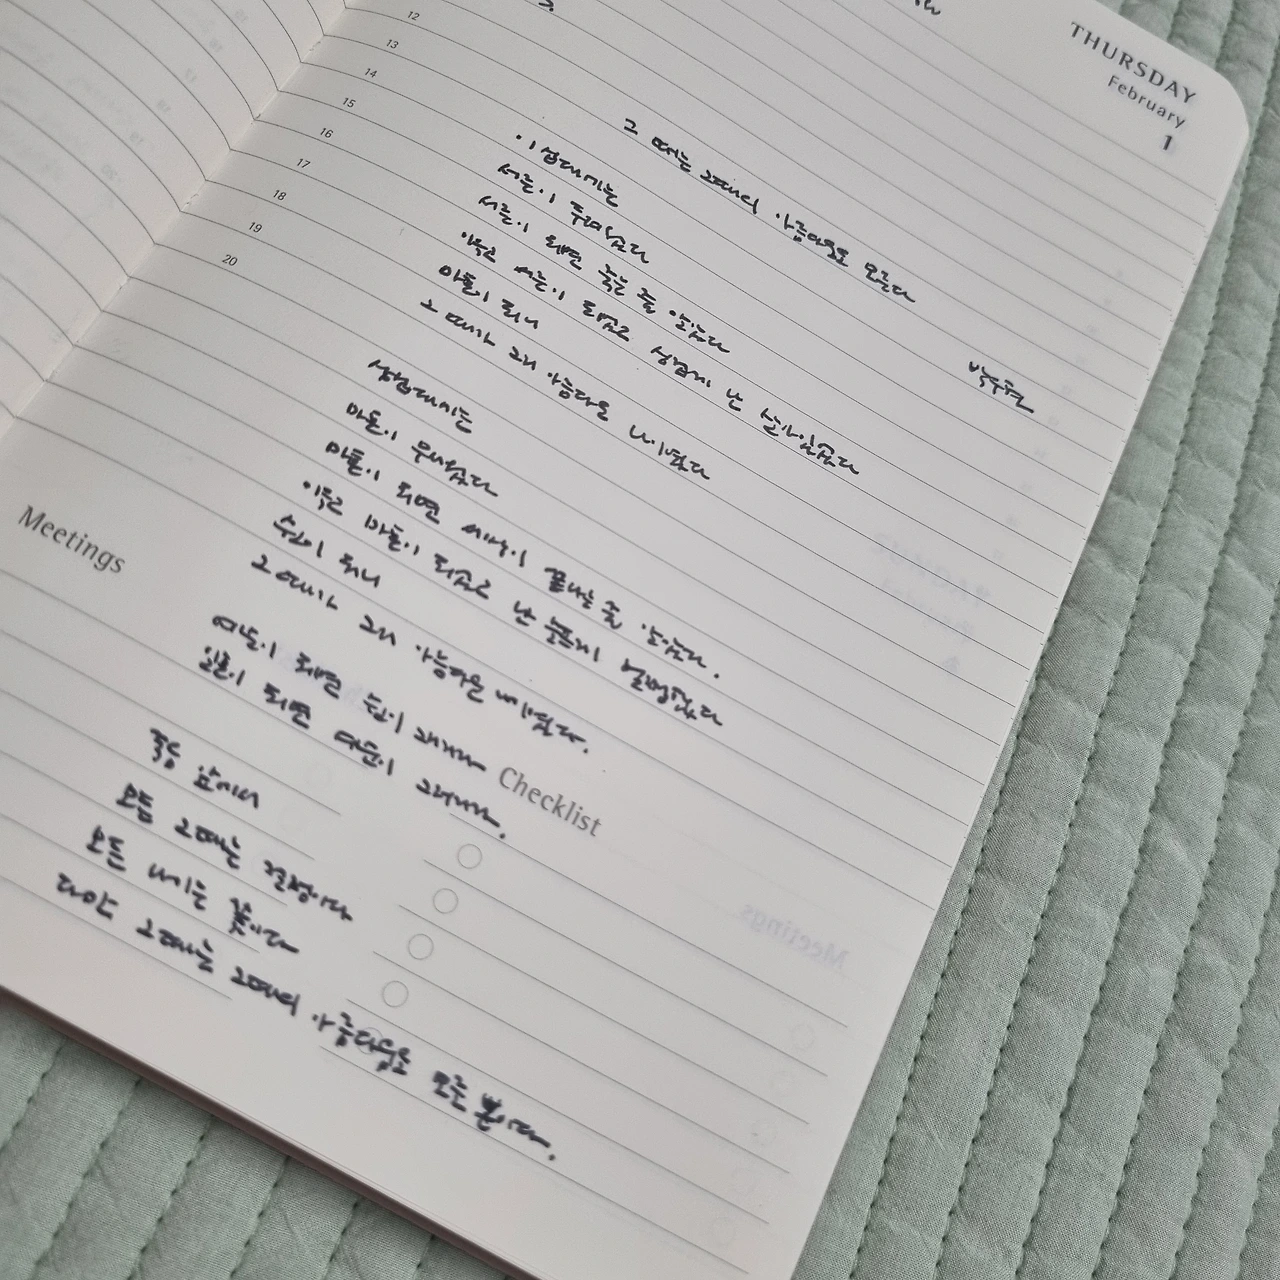 THURSDAY
February
1
12
13
14
15
16
17
18
19
20
그 때는 그때의 아름다움을 모른다
박우현
이십대에는
서른이 두려웠다
서른이 되면 죽는 줄 알았다
이윽고 서른이 되었고 싱겁게 난 살아있었다
마흔이 되니
그 때가 그리 아름다운 나이였다
삼십대에는
마흔이 무서웠다
마흔이 되면 세상이 끝나는 줄 알았다.
이윽고 마흔이 되었고 난 슬프게 멀쩡했다
쉰이 되니
그때가 그리 아름다운 나이였다.
예순이 되면 쉰이 그러리라
일흔이 되면 예순이 그러리라.
죽음 앞에서
모든 그때는 절정이다
모든 나이는 꽃이다
다만 그때는 그때의 아름다움을 모를 뿐이다.
Meetings
Checklist